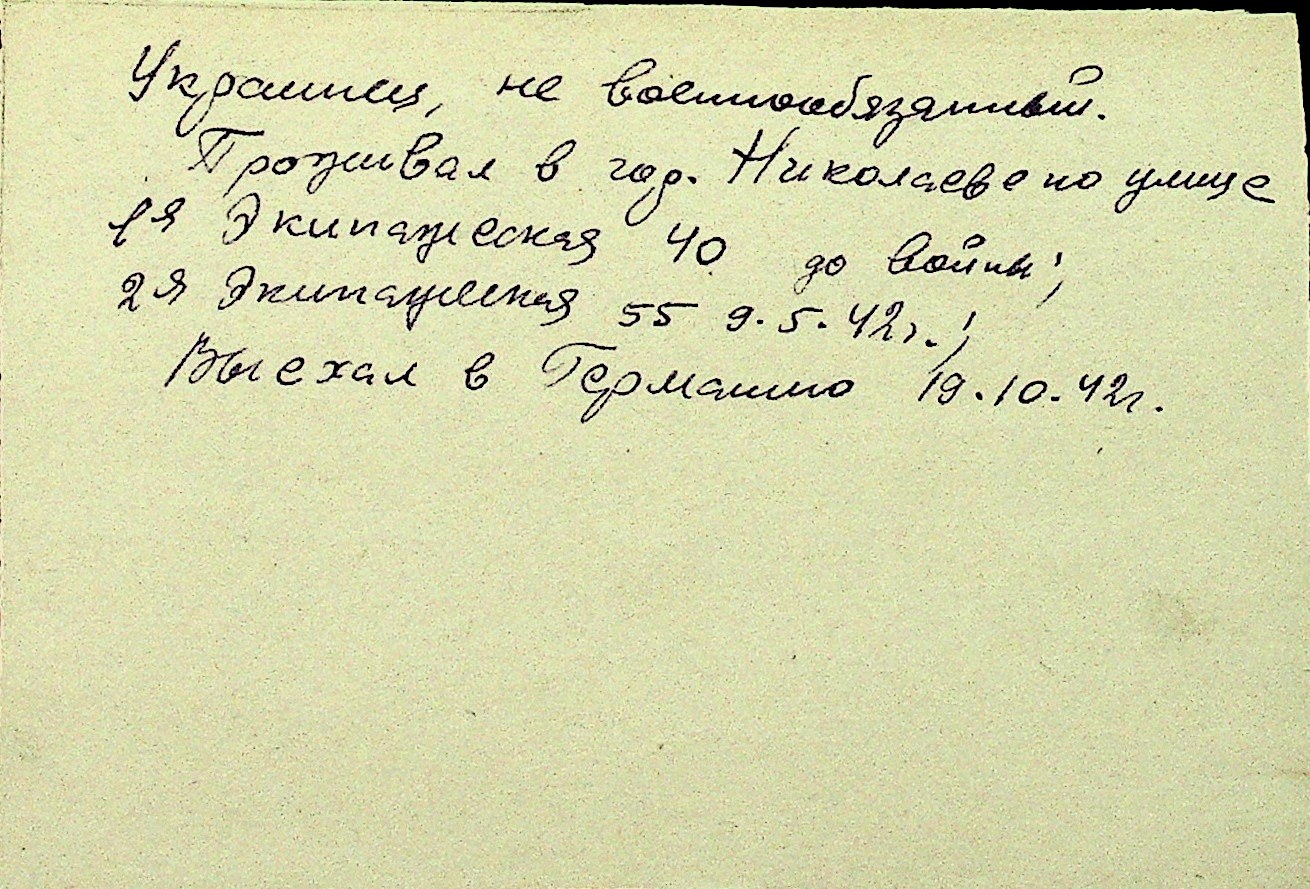 Украинец, не военнообязанный.
Проживал в гор. Николаеве по улице
1я Экипажеская 40 до войны;
2я Экипажеская 55 9.5.42г.;
Выехал в Германию 19.10.42г.